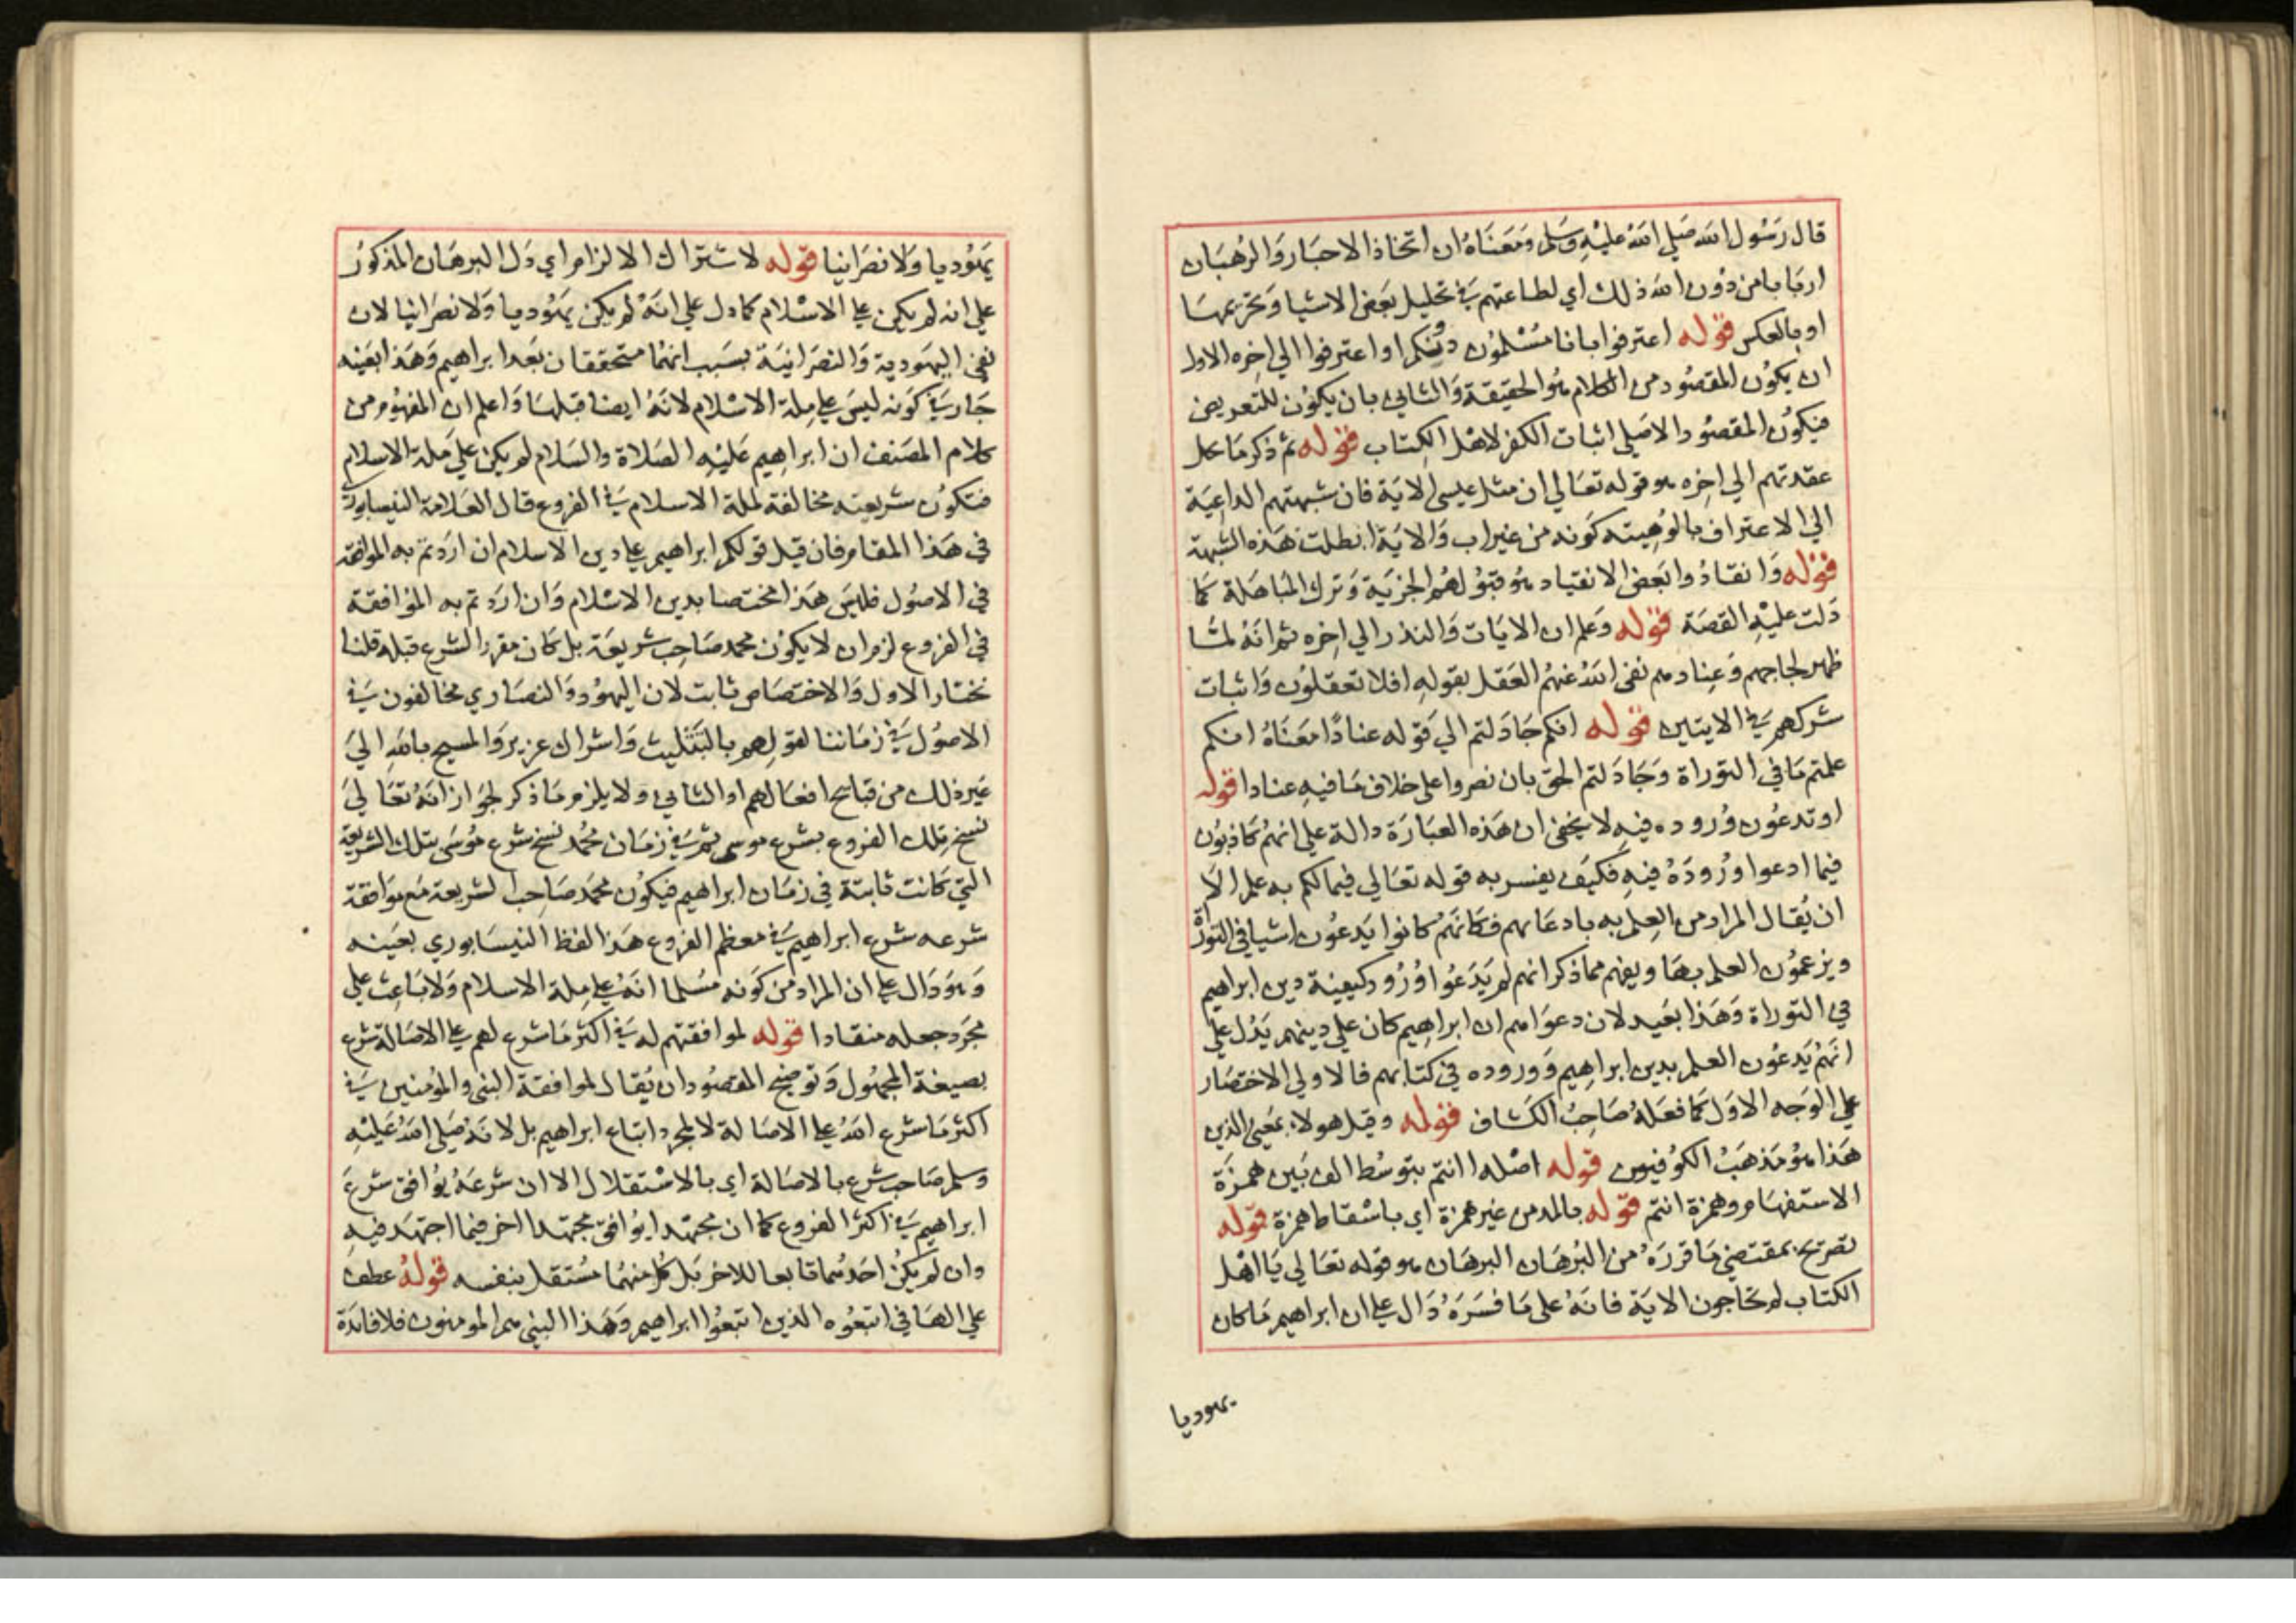 قال رسول الله صلي الله عليه وسلم ومعناه ان اتخاذ الاحبار والرهبان
اربابا من دون الله ذلك اي لطاعتهم في تحليل بعض الاشيا وتحريمها
او بالعكس قوله اعترفوا بانا مسلمون دونكم او اعترفوا الي اخره الاول
ان يكون المقصود من الكلام هو الحقيقة والثاني بان يكون للتعريض
فيكون المقصود الاصلي اثبات الكفر لاهل الكتاب قوله ثم ذكر ما يحل
عقدتهم الي اخره هو قوله تعالي ان مثل عيسي الاية فان شبهتهم الداعية
الي الاعتراف بالوهيته كونه من غير اب والاية ابطلت هذه الشبهة
قوله وانقادوا بعض الانقياد هو قبولهم الجزية وترك المباهلة كما
دلت عليه القصة قوله وعلم ان الايات والنذر الي اخره ثم انه لما
ظهر لجاجهم وعنادهم نفي الله عنهم العقل بقوله افلا تعقلون واثبات
شركهم في الايتين قوله انكم جادلتم الي قوله عنادا معناه انكم
علمتم ما في التوراة وجادلتم الحق بان نصروا علي خلاف ما فيه عنادا قوله
او تدعون وروده فيه لا يخفي ان هذه العبارة دالة علي انهم كاذبون
فيما ادعوا وروده فيه فكيف يفسر به قوله تعالي فيما لكم به علم الا
ان يقال المراد من العلم به بادعائهم فكانهم كانوا يدعون اشيا في التوراة
ويزعمون العلم بها ويفهم مما ذكر انهم لم يدعوا ورود كيفية دين ابراهيم
في التوراة وهذا بعيد لان دعواهم ان ابراهيم كان علي دينهم يدل علي
انهم يدعون العلم بدين ابراهيم ووروده في كتابهم فالاولي الاختصار
علي الوجه الاول كما فعله صاحب الكشاف قوله وقيل هولاء بمعني الذين
هذا هو مذهب الكوفيون قوله اصله اانتم بتوسط الف بين همزة
الاستفهام وهمزة انتم قوله بالمد من غير همزة اي باسقاط همزة قوله
تصريح بمقتضي ما قرره من البرهان البرهان هو قوله تعالي يا اهل
الكتاب لم تحاجون الاية فانه علي ما فسره دال علي ان ابراهيم ما كان
يهوديا
يهوديا ولا نصرانيا قوله لاشتراك الالزام اي دل البرهان المذكور
علي انه لم يكن علي الاسلام كما دل علي انه لم يكن يهوديا ولا نصرانيا لان
نفي اليهودية والنصرانية بسبب انهما متحققان بعد ابراهيم وهذا بعينه
جار في كونه ليس علي ملة الاسلام لانه ايضا قبلها واعلم ان المفهوم من
كلام المصنف ان ابراهيم عليه الصلاة والسلام لم يكن علي ملة الاسلام
فتكون شريعته مخالفة لملة الاسلام في الفروع قال العلامة النيسابوري
في هذا المقام فان قيل قولكم ابراهيم علي دين الاسلام ان اردتم به الموافقة
في الاصول فليس هذا مختصا بدين الاسلام وان اردتم به الموافقة
في الفروع لزم ان لا يكون محمد صاحب شريعة بل كان مقرر الشرع قبله قلنا
نختار الاول والاختصاص ثابت لان اليهود والنصاري مخالفون في
الاصول في زماننا لقولهم بالتثليث واشراك عزير والمسيح بالله الي
غير ذلك من قبائح افعالهم او الثاني ولا يلزم ما ذكر لجواز انه تعالي
نسخ تلك الفروع بشرع موسي ثم في زمان محمد نسخ شرع موسي بتلك الشريعة
التي كانت ثابتة في زمان ابراهيم فيكون محمد صاحب الشريعة مع موافقة
شرعه شرع ابراهيم في معظم الفروع هذا لفظ النيسابوري بعينه
وهو دال علي ان المراد من كونه مسلما انه علي ملة الاسلام ولا باعث علي
مجرد جعله منقادا قوله لموافقتهم له في اكثر ما شرع لهم علي الاصالة شرع
بصيغة المجهول وتوضيح المقصود ان يقال لموافقة النبي والمؤمنين في
اكثر ما شرع الله علي الاصالة لا لمجرد اتباع ابراهيم بل لانه صلي الله عليه
وسلم صاحب شرع بالاصالة اي بالاستقلال الا ان شرعه يوافق شرع
ابراهيم في اكثر الفروع كما ان مجتهدا يوافق مجتهدا اخر فيما اجتهد فيه
وان لم يكن احدهما تابعا للاخر بل كل منهما مستقل بنفسه قوله عطف
علي الها في اتبعوه الذين اتبعوا ابراهيم وهذا النبي هم المومنون فلا فائدة